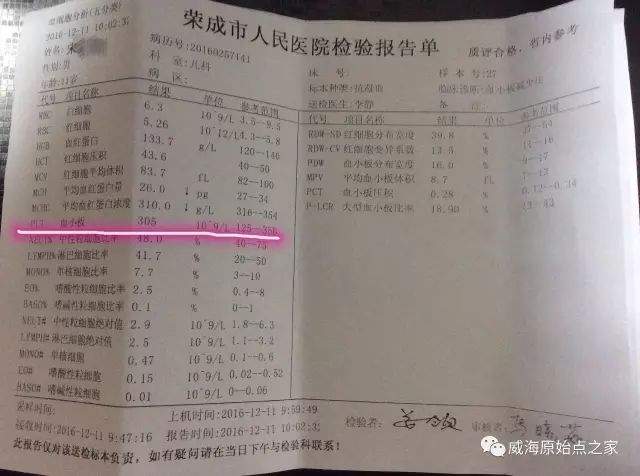 血细胞分析(五分类)
荣成市人民医院检验报告单
质评合格，省内参考
2016-12-11 10:02:3
姓名:
病历号:20160257141
床 号:
样本号:27
性别:男
科 室:儿科
标本种类:抗凝血
临床诊断:血小板减少性
年龄:11岁
病 区:
送检医生:李静
备 注:
代号 项目名称 结果 单位 参考范围
WBC 白细胞 6.3 10^9/L 3.5--9.5
RBC 红细胞 5.26 10^12/L 4.3--5.8
HGB 血红蛋白 133.7 g/L 120--146
HCT 红细胞压积 43.6 40--50
MCV 红细胞平均体积 83.7 fL 82--100
MCH 平均血红蛋白量 26.0 ↓ pg 27--34
MCHC 平均血红蛋白浓度 310.0 ↓ g/L 316--354
PLT 血小板 305 10^9/L 125--350
NEUT% 中性粒细胞比率 48.0 % 40--75
LYMPH% 淋巴细胞比率 41.7 % 20--50
MONO% 单核细胞比率 7.7 % 3--10
EO% 嗜酸性粒细胞比率 2.5 % 0.4--8
BASO% 嗜碱性粒细胞比率 0.1 % 0--1
NEUT# 中性粒细胞绝对值 2.9 10^9/L 1.8--6.3
LYMPH# 淋巴细胞绝对值 2.5 10^9/L 1.1--3.2
MONO# 单核细胞 0.47 10^9/L 0.1--0.6
EO# 嗜酸性粒细胞 0.15 10^9/L 0.02--0.52
BASO# 嗜碱性粒细胞 0.01 10^9/L 0--0.06
代号 项目名称 结果 单位 参考范围
RDW-SD 红细胞分布宽度 39.8 %
RDW-CV 红细胞变异系数 13.5 %
PDW 血小板分布宽度 16.0 %
MPV 平均血小板体积 8.7 fL
PCT 血小板压积 0.28 %
P-LCR 大型血小板比率 18.90 %
采样时间:
上机时间:2016-12-11 9:59:49
检验者:
审核者:
接收时间:2016-12-11 9:47:16
报告时间:2016-12-11 10:02:3
此报告仅对该送检标本负责，如有疑问请在当日下午与检验科联系！
威海原始点之家